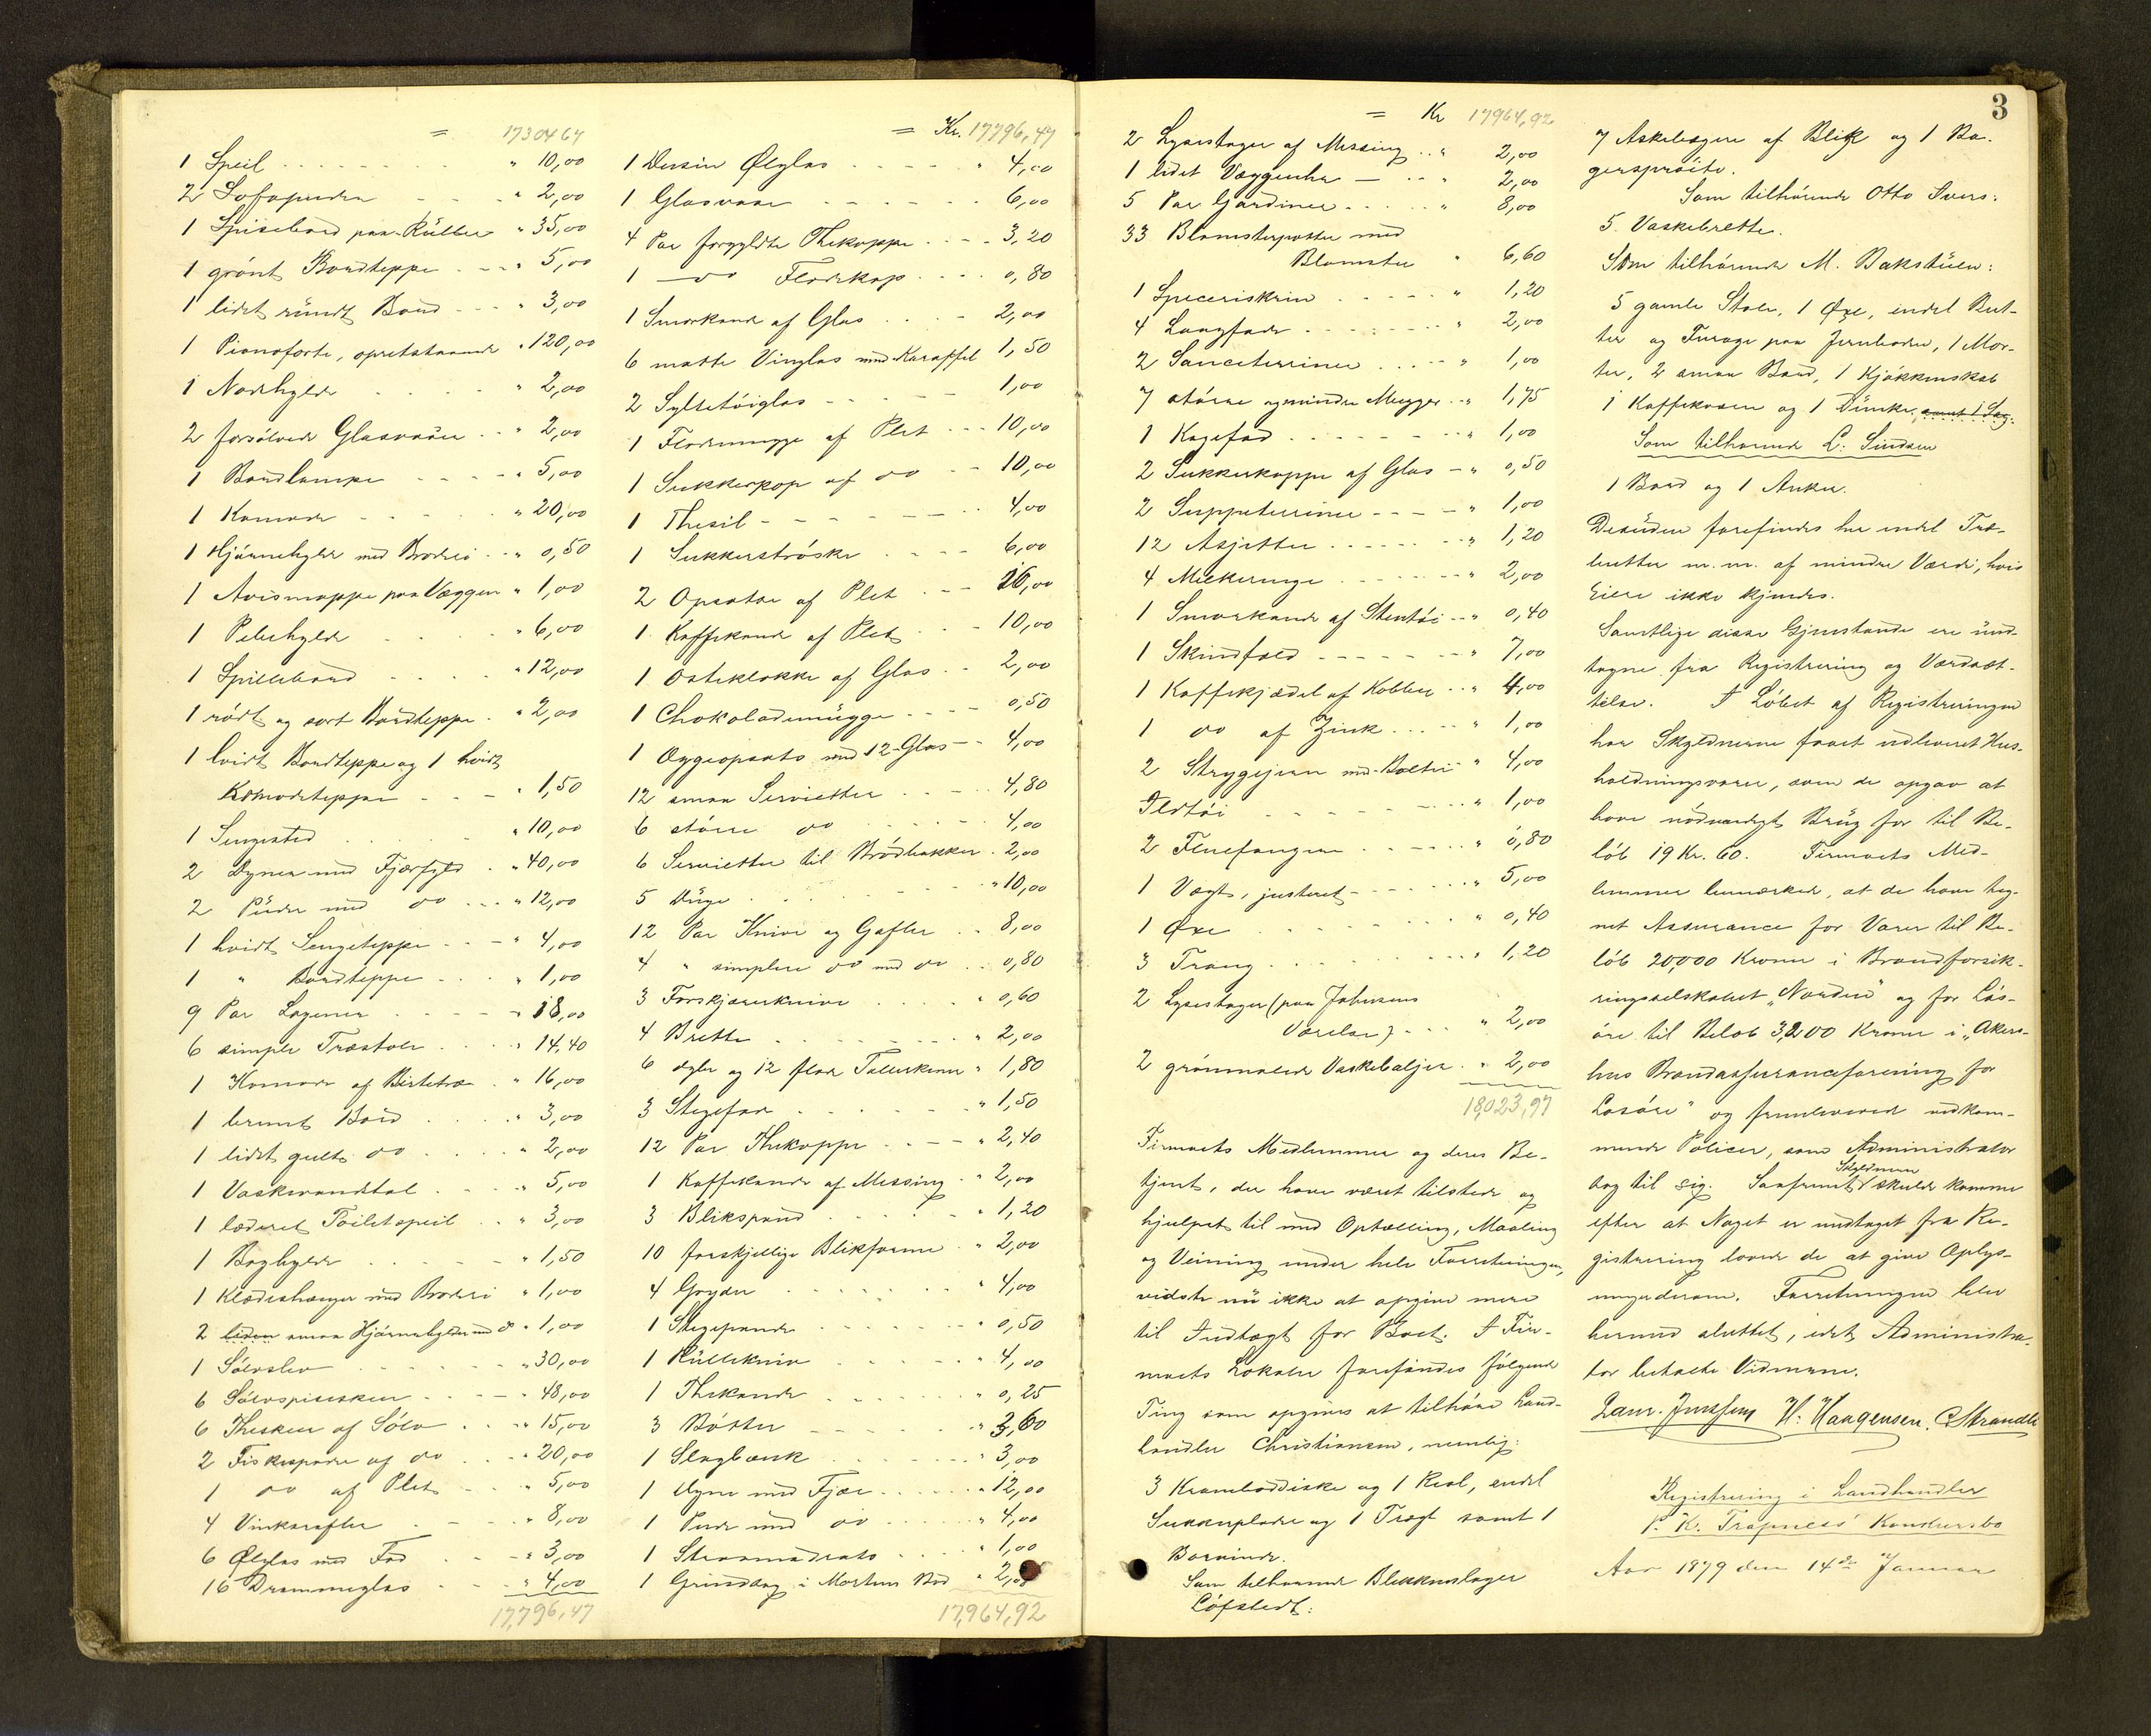 = 17304 67
1 Speil . . . . . . . . " 10,00
2 Sofapuder - - - " 2,00
1 Spisebord paa Ruller " 35,00
1 grønt Bordteppe . - - " 5,00
1 lidet rundt Bord - - - " 3,00
1 Pianoforte, opretstaaende " 120,00
1 Nodehylde . . . " 2,00
2 forsølvede Glasvaser . . " 2,00
1 Bordlampe - - - - " 5,00
1 Komode - - - " 20,00
1 Hjørnehylde med Broderi . . " 0,50
1 Avismappe paa Væggen " 1,00
1 Pibehylde . . . " 6,00
1 Spillebord . . . . " 12,00
1 rødt og sort Bordteppe . " 2,00
1 hvidt Bordteppe og 1 hvidt
Komodeteppe - - - " 1,50
1 Sengested " 10,00
2 Dyner med Fjærfyld . " 40,00
2 Puder med do . . . " 12,00
1 hvidt Sengeteppe - - - " 4,00
1 " Bordteppe . . . " 1,00
9 Par Lagener . . - - " 18,00
6 simple Træstole . . . . " 14,40
1 Komode af Birketræ . " 16,00
1 brunt Bord . . . " 3,00
1 lidet gult do . . . . " 2,00
1 Vaskevandstol . . . " 5,00
1 læderet Toiletspeil . . " 3,00
1 Boghylde . . . - - " 1,50
1 Klædeshænger med Broderi " 1,00
2 liden smaa Hjørnehylder med do " 1,00
1 Sølvslev - - - - - " 30,00
6 Sølvspiseskeer - - - - " 48,00
6 Theskeer af Sølv . . . " 15,00
2 Fiskespader af do . . . " 20,00
1 do af Plet - - . " 5,00
4 Vinkarafler . - - . " 8,00
6 Ølglas med Fod . - - " 3,00
16 Drammeglas . . . " 4,00
17,796,47
= Kr. 17796,47
1 Dusin Ølglas . . . - - " 4,00
1 Glasvase - - - - - . 6,00
4 Par forgyldte Thekopper . . - - 3,20
1 — do Flødekop . . . . 0,80
1 Smørkande af Glas . . . - 2,00
6 matte Vinglas med Karaffel 1,50
2 Syltetøiglas - - - - 1,00
1 Flødemugge af Plet - - - 10,00
1 Sukkerkop af do - - 10,00
1 Thesil - - - - - - . . 4,00
1 Sukkerstrøske . . - - 6,00
2 Opsatse af Plet . . - - 26,00
1 Kaffekande af Plet . . - 10,00
1 Osteklokke af Glas . . 2,00
1 Chokolademugge - - - - 0,50
1 Æggeopsats med 12 Glas - - 4,00
12 smaa Servietter . . - - 4,80
6 større do . . . . . 4,00
6 Servietter til Brødbakker . 2,00
5 Duge . . . . - - - " 10,00
12 Par Knive og Gafler . . 8,00
4 " simplere do med do . . 0,80
3 Forskjærerknive . . . . " 0,60
4 Brette . . . - - - - " 2,00
6 dybe og 12 flade Tallerkener " 1,80
3 Stegefade . . . - - " 1,50
12 Par Thekopper . . - - " 2,40
1 Kaffekande af Messing . " 2,00
3 Blikspand . . . - - " 1,20
10 forskjellige Blikforme . " 2,00
4 Gryder . . . . . " 4,00
1 Stegepande - - - - - " 0,50
1 Rullekniv . . - - - " 4,00
1 Thekande - - - - - " 0,25
3 Bøtter - - - - . . " 3,60
1 Slagbænk . . . . . " 3,00
1 Dyne med Fjær . . . . . " 12,00
1 Pude med do . . . . " 4,00
1 Straamadrats . . . . " 1,00
1 Grindsag i Mortens Bod " 2,00
17,964,92
3
= Kr 17964,92
2 Lysestager af Messing . . " 2,00
1 lidet Væggeuhr — . . " 2,00
5 Par Gardiner . . . . . " 8,00
33 Blomsterpotter med
Blomster " 6,60
1 Speceriskrin . . . . - - " 1,20
4 Langfade . . . - - - - " 2,00
2 Sauceterriner . . . - - " 1,00
7 større og mindre Mugger . . " 1,75
1 Kagefad . . . . - - - - " 1,00
2 Sukkerkopper af Glas - - " 0,50
2 Suppeterriner - - - - " 1,00
12 Asjetter . . . . - - - - " 1,20
4 Melkeringe . . . - - - - " 2,00
1 Smørkande af Stentøi . . " 0,40
1 Skindfæld - - - - - - - " 7,00
1 Kaffekjædel af Kobber . . " 4,00
1 do af Zink . . . - - " 1,00
2 Strygejern med Bolter " 4,00
Ildtøi . . . . - - - . . " 1,00
2 Fluefangere . . . - - - " 0,80
1 Vægt, justeret - - - - - - " 5,00
1 Øxe . . . . . . . " 0,40
3 Traug . . . . . . . " 1,20
2 Lysestager (paa Johnsens
Værelse) . . . " 2,00
2 grønmalede Vaskebaljer . " 2,00
18,023,97
Firmaets Medlemmer og deres Be-
tjent, der have været tilstede og
hjulpet til med Optælling, Maaling
og Veining under hele Forretningen,
vidste nu ikke at opgive mere
til Indtægt for Boet. I Fir-
maets Lokaler forefandtes følgende
Ting som opgives at tilhøre Land-
handler Christiansen, nemlig:
3 Kramboddiske og 1 Reol, endel
Sukkerplader og 1 Tragt samt 1
Borvinde.
Som tilhørende Blikkenslager
Löfstedt:
7 Askebægere af Blik og 1 Ba-
gersprøite.
Som tilhørende Otto Svers:
5 Vaskebrette.
Som tilhørende M. Bakstuen:
5 gamle Stole, 1 Øxe, endel But-
ter og Furage paa Jernboden, 1 Mor-
ter, 2 smaa Bord, 1 Kjøkkenskab
1 Kaffekværn og 1 Dunke, samt 1 Sag.
Som tilhørende L. Sindsen
1 Bord og 1 Anker.
Desuden forefindes her endel Træ-
butter m. m. af mindre Værdi, hvis
Eiere ikke kjendes.
Samtlige disse Gjenstande ere und-
tagne fra Registrering og Værdsæt-
telse. I Løbet af Registreringen
har Skyldnerne faaet udleveret Hus-
holdningsvarer, som de opgav at
have nødvendigt Brug for til Be-
løb 19 Kr. 60. Firmaets Med-
lemmer bemærkede, at de have teg-
net Assurance for Varer til Be-
løb 20,000 Kroner i Brandforsik-
ringsselskabet "Norden" og for Løs-
øre til Beløb 3,200 Kroner i "Akers-
hus Brandassuranceforening for
Løsøre" og fremleverede vedkom-
mende Policer, som Administrator
Skyldnerne
tog til sig. Saafremt skulde komme
efter at Noget er undtaget fra Re-
gistrering lovede de at give Oplys-
ninger derom. Forretningen blev
hermed sluttet, idet Administra-
tor betalte Vidnerne.
Laur. Jenssen H. Haagensen. C Strandli
Registrering i Landhandler
P. K. Trapness' Konkursbo
Aar 1879 den 14de Januar